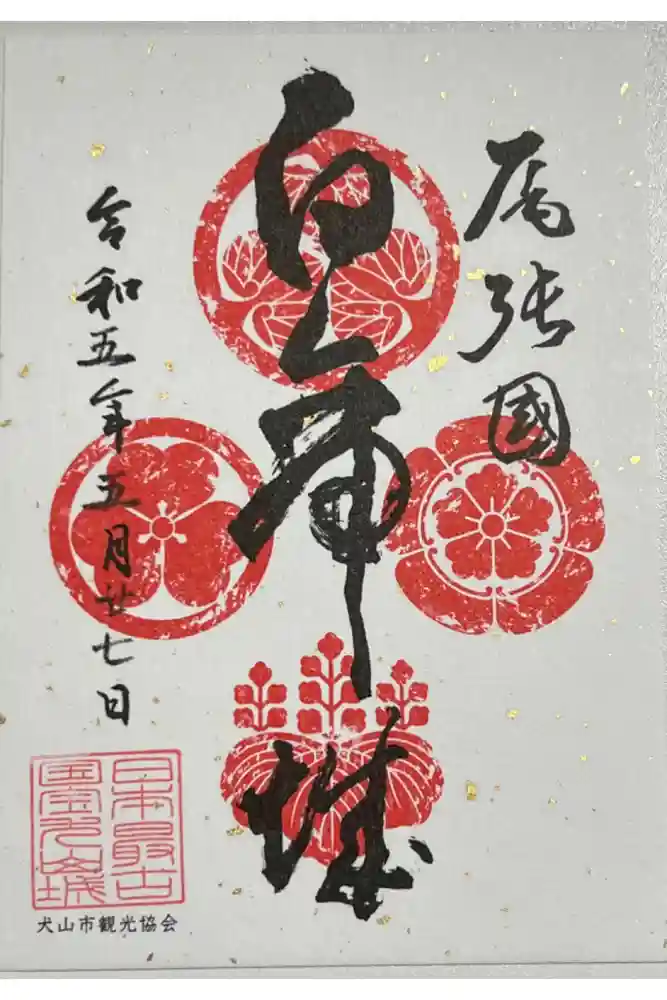 尾張國
白帝城
令和五年五月廿七日
日本最古
国宝犬山城
犬山市観光協会